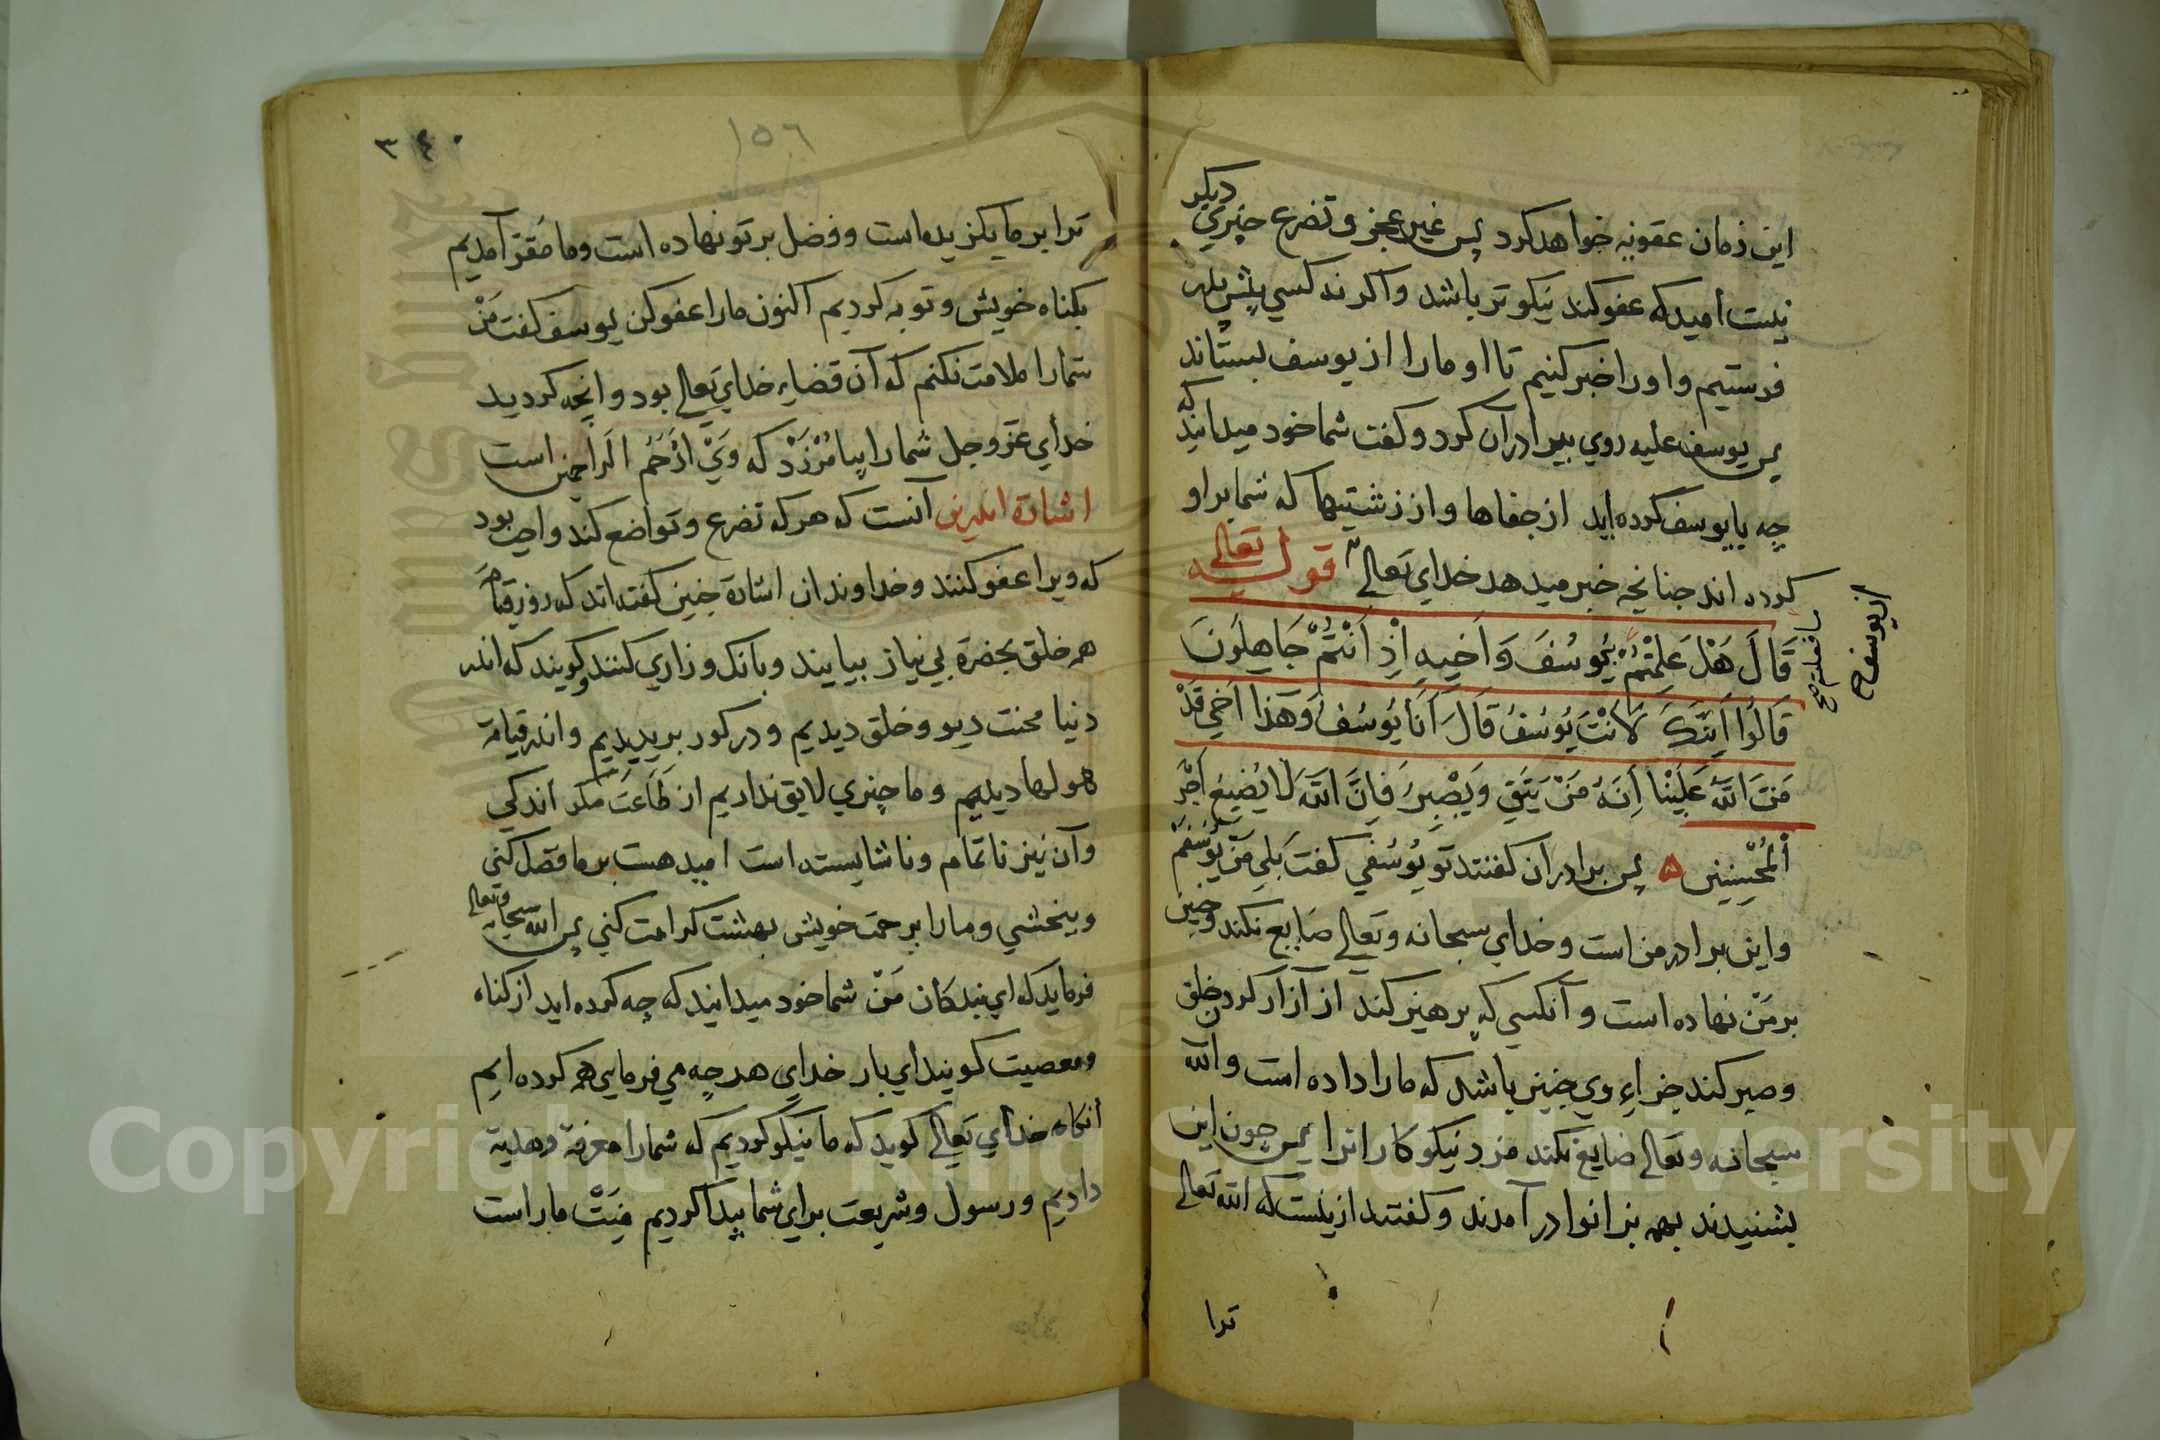 این زمان عقوبه خواهد کرد پس غیر عجز و تضرع چیزي دیکر
نیست امید که عفو کند نیکو تر باشد واکر نه کسي پیش پدر
فرستیم واورا خبر کنیم تا او مارا از یوسف بستاند
پس یوسف علیه روي ببرادران کرد وکفت شما خود میدانید که
چه با یوسف کرده اید از جفاها واز زشتیها که شما بر او
کرده اند جنانچه خبر میدهد خداي تعالي قوله تعالی
قَالَ هَلْ عَلِمْتُمْ بِيُوسُفَ وَاَخِيهِ اِذْ اَنْتُمْ جَاهِلُونَ
ما فعلتم صح
از یوسف ح
قَالُوا اَئِنَّكَ لَاَنْتَ يُوسُفُ قَالَ اَنَا يُوسُفُ وَهَذَا اَخِي قَدْ
مَنَّ اللّٰهُ عَلَيْنَا اِنَّهُ مَنْ يَتَّقِ وَيَصْبِرْ فَاِنَّ اللّٰهَ لَا يُضِيعُ اَجْرَ
اَلْمُحْسِنِينَ ه پس برادران کفتند تو یُوسُفي کفت بَلي مَن یوسفم
واین برادر من است وخداي سبحانه وتعالي ضایع نکند وچنین
بر مَنْ نهاده است وآنکسي که پرهیز کند از آزار کردن خلق
وصبر کند جزاءِ وي چنین باشد که مارا داده است والله
سبحانه وتعالي ضایع نکند مزد نیکوکارانرا پس چون این
بشنیدند بهمه بزانوا در آمدند وکفتند ازینست که الله تعالي
ترا
٣٤٠
١٥٦
ترا بر ما بکزیده است وفضل بر تو نهاده است وما مُقِرّ آمدیم
بکناه خویش وتوبه کردیم اکنون مارا عفو کن یوسف کفت مَنْ
شمارا ملامت نکنم که آن قضاءِ خداي تعالي بود وانچه کردید
خداي عَزّ وجل شمارا بیامُرْزَدْ که وَيْ اَرْحَمُ الراحمین است
اشارة اندرین آنست که هر که تضرع وتواضع کند واجب بود
که ویرا عفو کنند وخداوندان اشارة چنین کفته اند که روز قیامة
همه خلق بحضرة بي نیاز بیایند وبانک وزاري کنند وکویند که اندر
دنیا محنت دیو وخلق دیدیم ودر کور بریدیم واندر قیامة
هولها دیدیم وما چیزي لایق نداریم از طَاعَت مکر اندکي
وآن نیز ناتمام وناشایسته است امید هست بر ما فضل کني
وببخشي ومارا برحمت خویش بهشت کرامت کني پس الله سبحانه وتعالی
فرماید که اي بندکان مَنْ شما خود میدانید که چه کرده اید از کناه
ومعصیت کویند اي بار خداي هر چه مي فرمایي همه کرده ایم
آنکاه خداي تعالي کوید که ما نیکو کردیم که شمارا معرفة وهدیة
دادیم ورسول وشریعت براي شما پیدا کردیم مِنَّتْ ما راست
Copyright © King Saud University